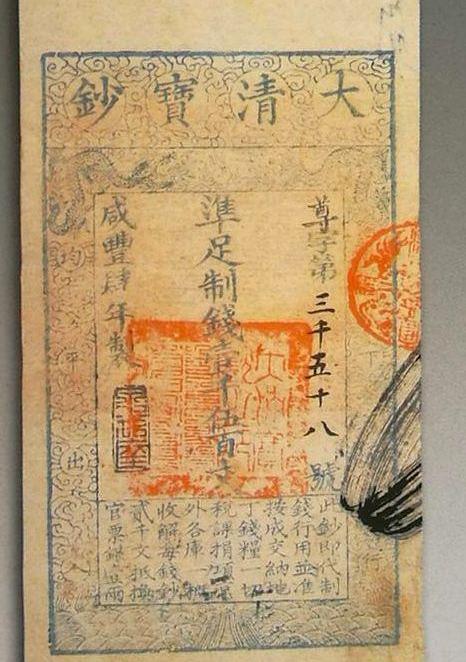 大清寶鈔
尊字第三千五十八號
準足制錢壹千伍百文
咸豐肆年製
均平出入
此鈔即代制
錢行用並准
按成交納地
丁錢糧一切
稅課捐項京
外各庫一概
收解每錢鈔
貳千文抵換
官票銀壹兩